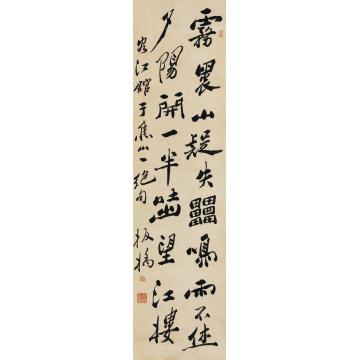 霧裹山疑失靁鳴雨不休
夕陽開一半吐出望江樓
客江于焦山一絕句 板橋